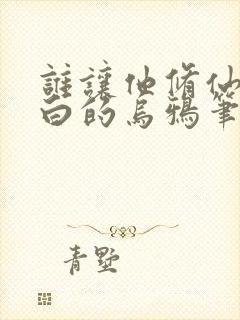 誰讓他脩仙
白的烏鴉筆
青墅